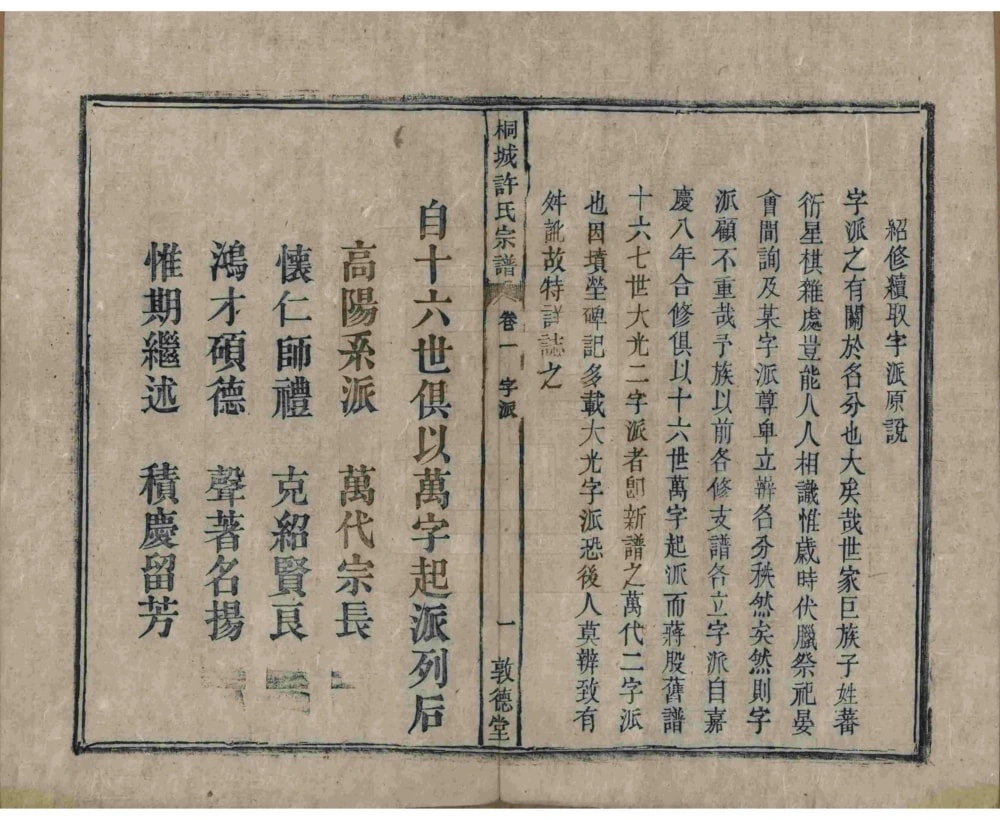 紹修續取字派原說
字派之有關於名分也大矣哉世家巨族子姓蕃
衍星棋雜處豈能人人相識惟歲時伏臘祭祀晏
會間詢及某字派尊卑立辨名分秩然矣然則字
派顧不重哉予族以前各修支譜各立字派自嘉
慶八年合修俱以十六世萬字起派而蔣股舊譜
十六七世大光二字派者卽新譜之萬代二字派
也因墳塋碑記多載大光字派恐後人莫辨致有
舛訛故特詳誌之
桐城許氏宗譜 卷一 字派 一 敦德堂
自十六世俱以萬字起派列后
高陽系派 萬代宗長
懷仁師禮 克紹賢良
鴻才碩德 聲著名揚
惟期繼述 積慶留芳